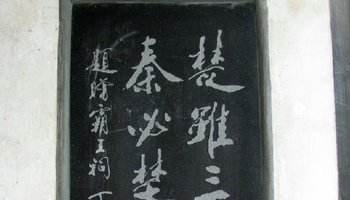 楚雖三
秦必楚
題
霸王祠